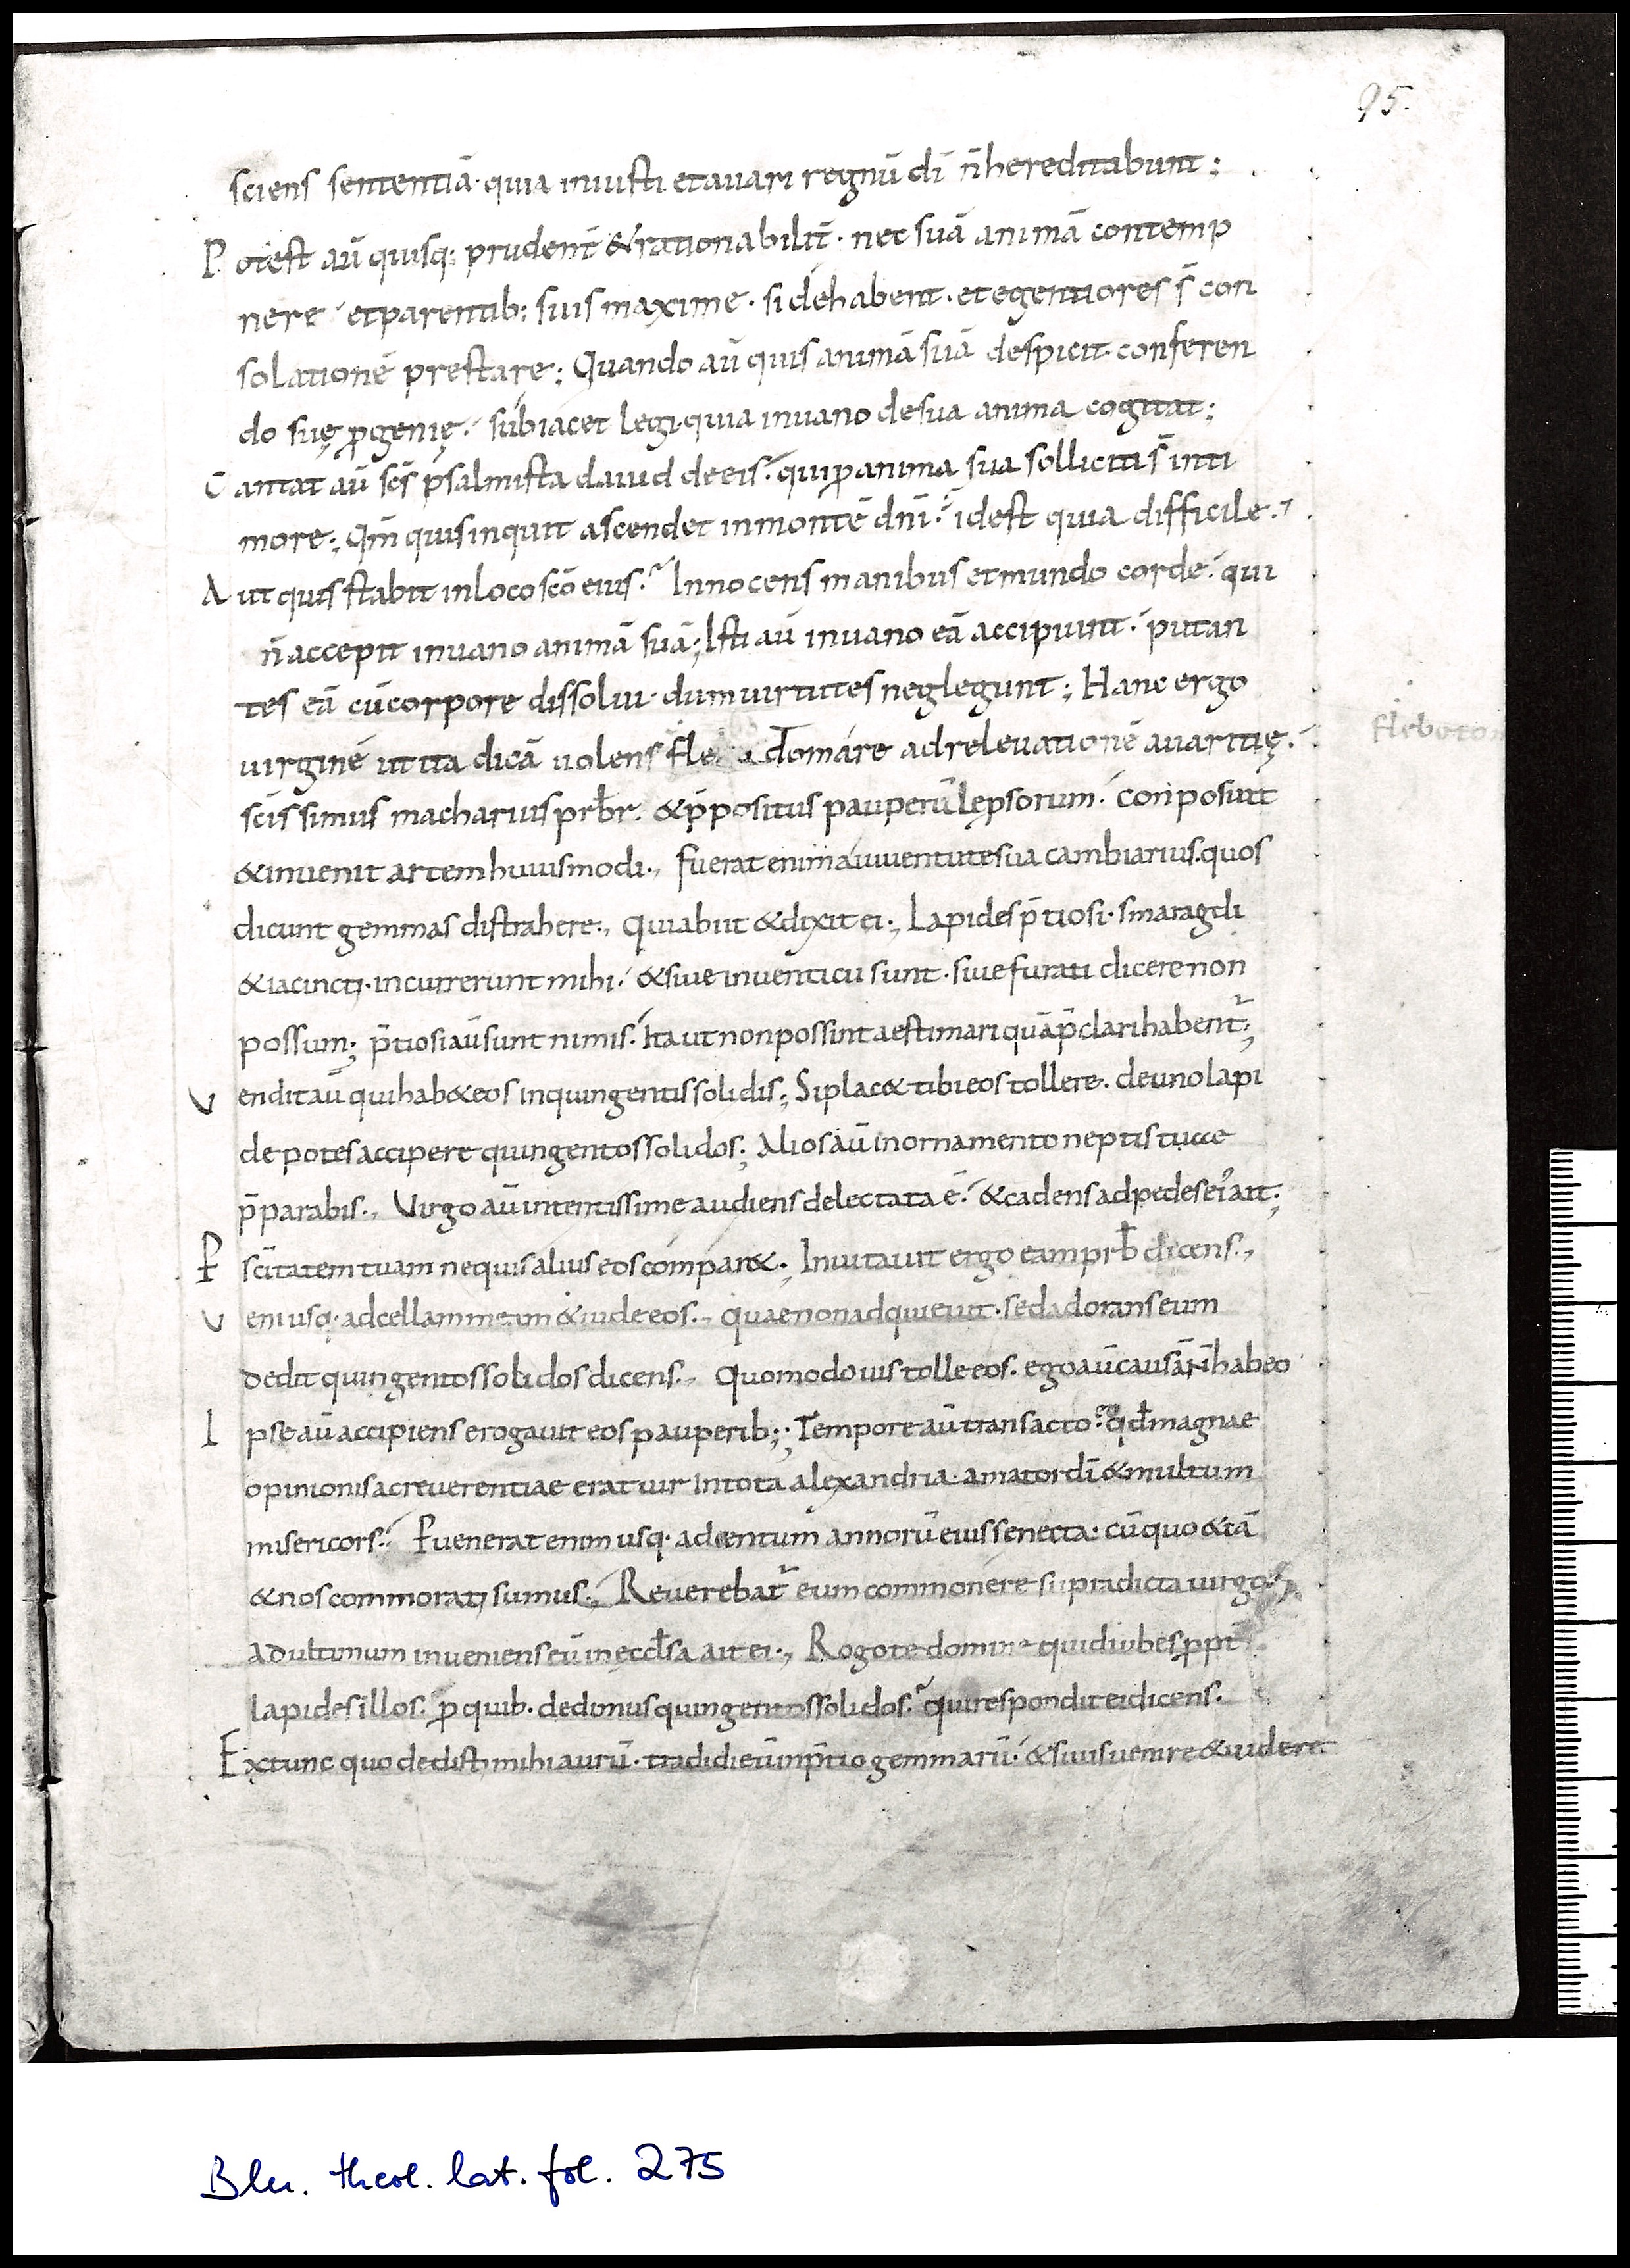 95.
sciens sententiā· quia iniusti et auari regnū dī n̄ hereditabunt;
Potest aū quisq; prudent̄ & rationabilit̄· nec suā animā contemp
nere et parentib; suis maxime· si dehabent· et egentiores s̄ con
solationē prestare; Quando aū quis animā suā despicit conferen
do suę ꝓgenię· subiacet legi· quia inuano de sua anima cogitat;
Cantat aū scs̄ psalmista dauid de eis· qui ꝓ anima sua solliciti s̄ in ti
more; Qm̄ quis inquit ascendet in montē dnī· id est quia difficile·
Aut quis stabit in loco scō eius· Innocens manibus et mundo corde· qui
n̄ accepit inuano animā suā; Isti aū inuano eā accipiunt· putan
tes eā cū corpore dissolui· dum uirtutes neglegunt; Hanc ergo
uirginē ut ita dicā uolens fle domare ad releuationē auaritię·
fleboto
scīssimus macharius prb̄r· & p̄positus pauperū lępsorum· conposuit
& inuenit artem huiusmodi·, fuerat enim a iuuentute sua cambiarius· quos
dicunt gemmas distrahere·, Qui abiit & dixit ei·, Lapides p̄tiosi· smaragdi
& iacincti· incurrerunt mihi· & siue inuenticii sunt· siue furati dicere non
possum; p̄tiosi aū sunt nimis· Ita ut non possint aestimari quā p̄clari habent᷑;
Vendit aū qui hab& eos in quingentis solidis; Si plac& tibi eos tollere· de uno lapi
de potes accipere quingentos solidos; Alios aū in ornamento neptis tuae
p̄parabis·, Virgo aū intentissime audiens delectata ē· & cadens ad pedes ei᾽ ait;
P scītatem tuam ne quis alius eos compar&·, Inuitauit ergo eam prb̄ dicens·,
Veni usq· ad cellam meam & uide eos·, quae non adquieuit· sed adorans eum
dedit quingentos solidos dicens·, Quomodo uis tolle eos· ego aū causā n̄ habeo
Ipse aū accipiens erogauit eos pauperib;; Tempore aū transacto· eo qd̄ magnae
opinionis ac reuerentiae erat uir in tota alexandria· amator dī & multum
misericors·, Puenerat enim usq· ad centum annorū eius senecta· cū quo & iā
& nos commorati sumus·, Reuerebat᷑ eum commonere supradicta uirgo·
Ad ultimum inueniens eū in ęccl̄sa ait ei·, Rogo te domine quid iubes ꝓpt̄
lapides illos· ꝓ quib· dedimus quingentos solidos· qui respondit ei dicens·
Ex tunc quo dedisti mihi aurū· tradidi eū in p̄tio gemmarū· & si uis uenire & uidere
Bln. theol. lat. fol. 275